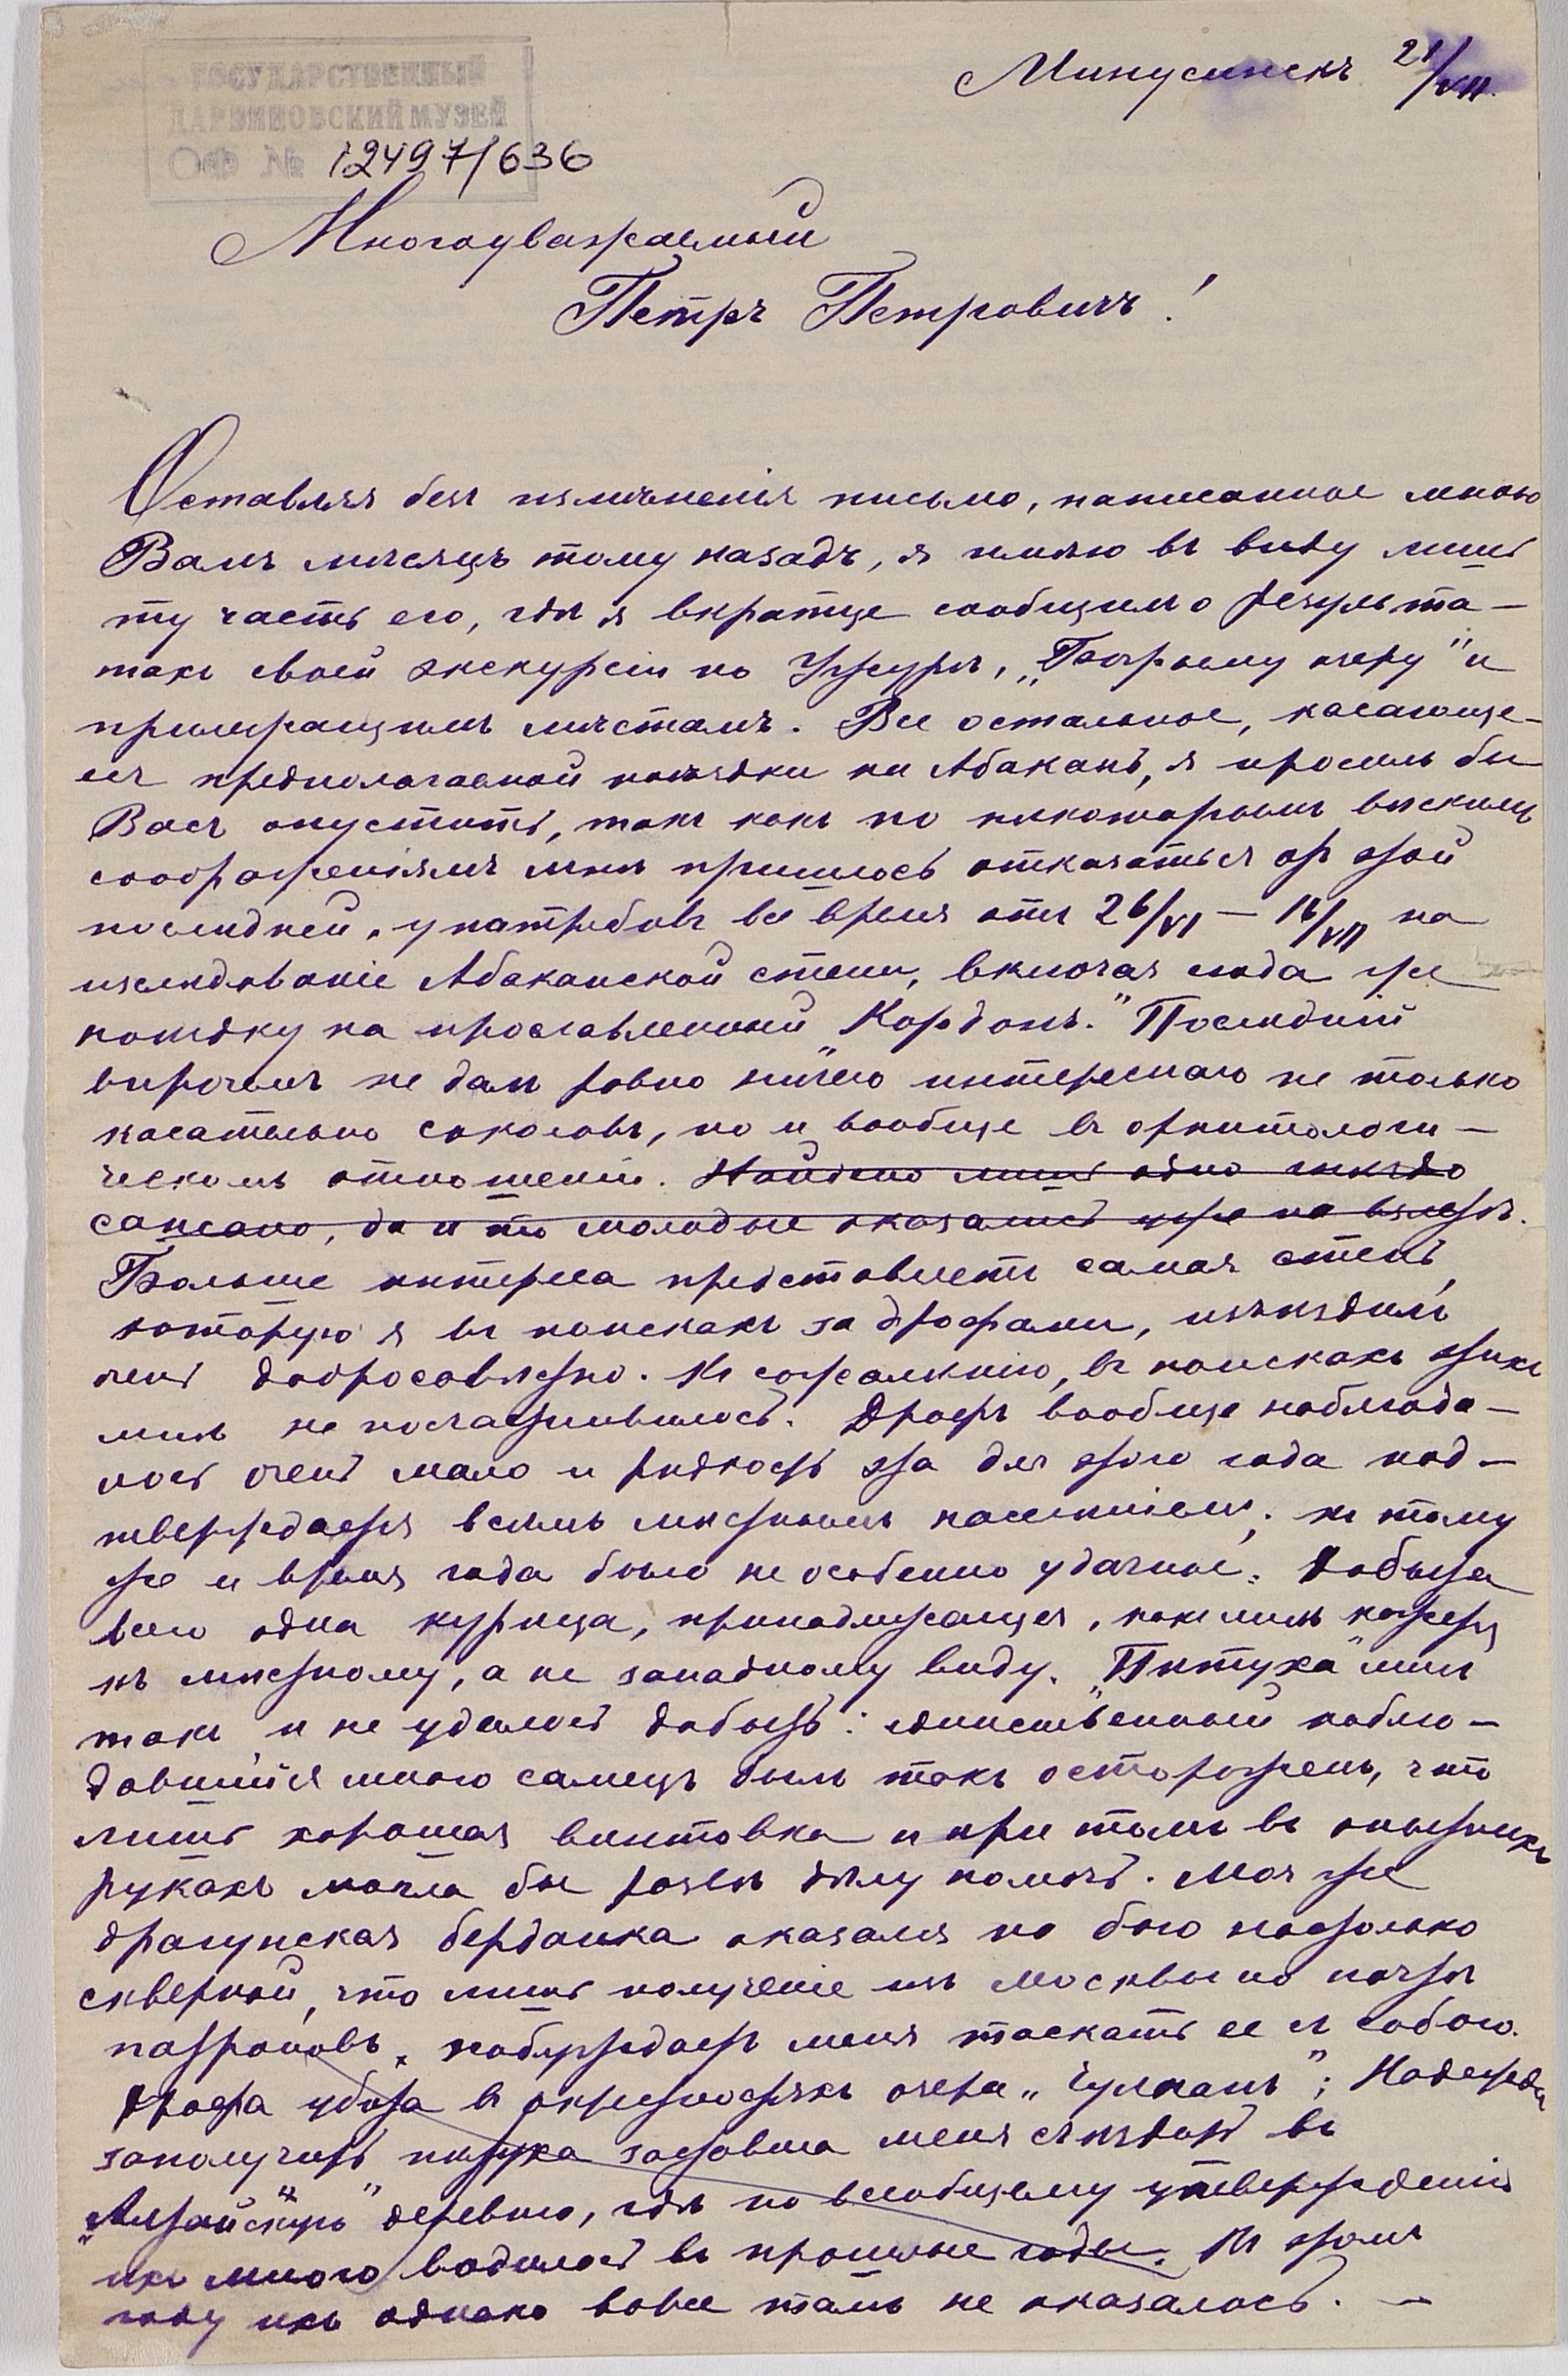 Минусинскъ 21/VII.
ГОСУДАРСТВЕННЫЙ
ДАРВИНОВСКИЙ МУЗЕЙ
ОФ № 12497/636
Многоуважаемый
Петръ Петровичъ!
Оставляя безъ измѣненія письмо, написанное мною
Вамъ мѣсяцъ тому назадъ, я имѣю въ виду лишь
ту часть его, гдѣ я вкратце сообщилъ о результа-
тахъ своей экскурсіи по Ужурѣ, „Божьему озеру“ и
прилежащимъ мѣстамъ. Все остальное, касающее-
ся предполагаемой поѣздки на Абаканъ, я просилъ бы
Васъ опустить, такъ какъ по нѣкоторымъ вѣскимъ
соображеніямъ мнѣ пришлось отказаться отъ этой
послѣдней, употребивъ все время отъ 26/VI — 16/VII на
изслѣдованіе Абаканской степи, включая сюда же
поѣздку на прославленный „Кордонъ.“ Послѣдній
впрочемъ не далъ ровно ничего интереснаго не только
касательно соколовъ, но и вообще въ орнитологи-
ческомъ отношеніи. Найдено лишь одно гнѣздо
сапсана, да и то молодые оказались уже на взлетѣ.
Больше интереса представляетъ самая степь,
которую я въ поискахъ за дрофами, изъѣздилъ
очень добросовѣстно. Къ сожалѣнію, въ поискахъ этихъ
мнѣ не посчастливилось. Дрофъ вообще наблюда-
лось очень мало и рѣдкость эта для этого года под-
тверждается всѣмъ мѣстнымъ населеніемъ; къ тому
же и время года было не особенно удачное. Добыта
всего одна курица, принадлежащая, какъ мнѣ кажется
къ мѣстному, а не западному виду. „Пѣтуха“ мнѣ
такъ и не удалось добыть: единственный наблю-
давшійся мною самецъ былъ такъ остороженъ, что
лишь хорошая винтовка и при томъ въ опытныхъ
рукахъ могла бы развѣ дѣлу помочь. Моя же
драгунская берданка оказалась по бою настолько
скверной, что лишь полученіе изъ Москвы по почтѣ
патроновъ, побуждаетъ меня таскать ее съ собою.
Дрофа убита въ окрестностяхъ озера „ “; Надежда
заполучить пѣтуха заставила меня съѣздить въ
„Алтайскую“ деревню, гдѣ по всеобщему утвержденію
ихъ много водилось въ прошлые годы. Въ этомъ
году ихъ однако вовсе тамъ не оказалось. —